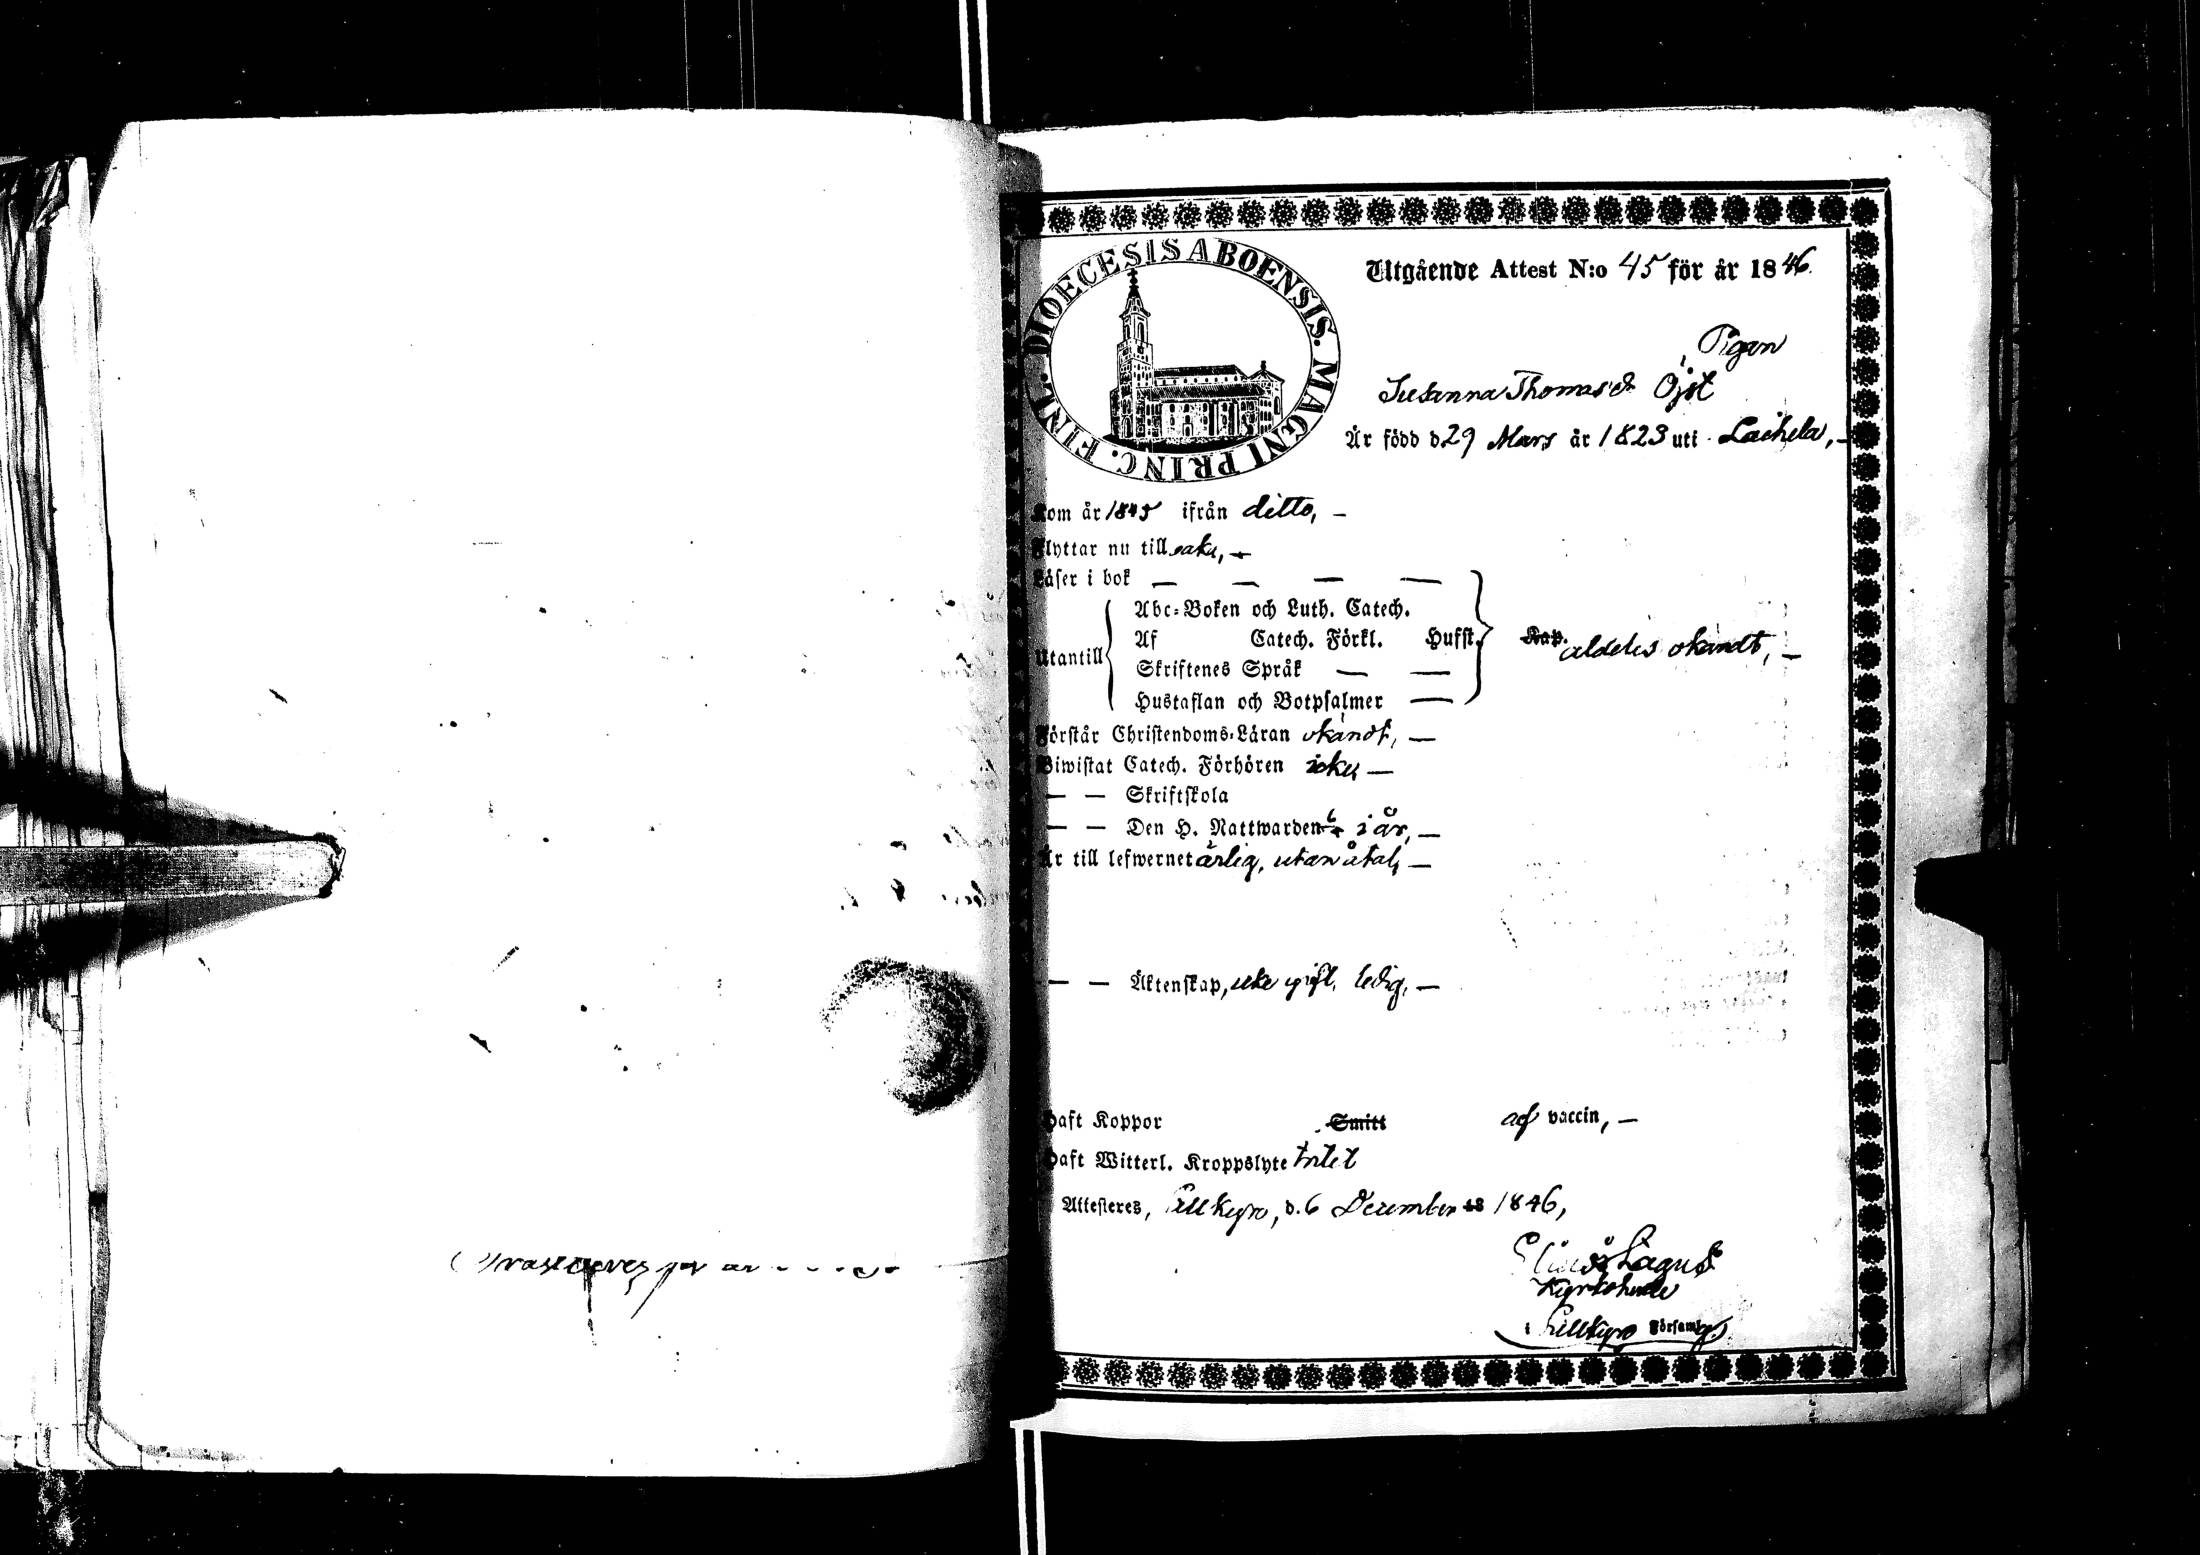 DIOECESIS ABOENSIS. MAGNI PRINC. FINL.
Utgående Attest N:o 45 för år 1846.
Pigan
Susanna Thomasd:r Öjst
Är född d. 29 Mars år 1823 uti Laihela, —
Kom år 1845 ifrån ditto, —
Flyttar nu till —
Läser i bok — — — —
Utantill
Abc-Boken och Luth. Catech.
Af Catech. Förkl. Hufst.
Skriftenes Språk — —
Hustaflan och Botpsalmer —
Kap. aldeles okändt, —
Förstår Christendoms-Läran okändt, —
Biwistat Catech. Förhören icke, —
— — Skriftskola
— — Den H. Nattwarden i år, —
Är till lefwernet ärlig, utan åtal, —
— — Äktenskap, icke gift, ledig, —
Haft Koppor Smitt af vaccin, —
Haft Witterl. Kroppslyte Intet
Attesteres, Lillkyro, d. 6 December 18 1846,
Elias Lagus
Kyrkoherde
i Lillkyro Församlg.